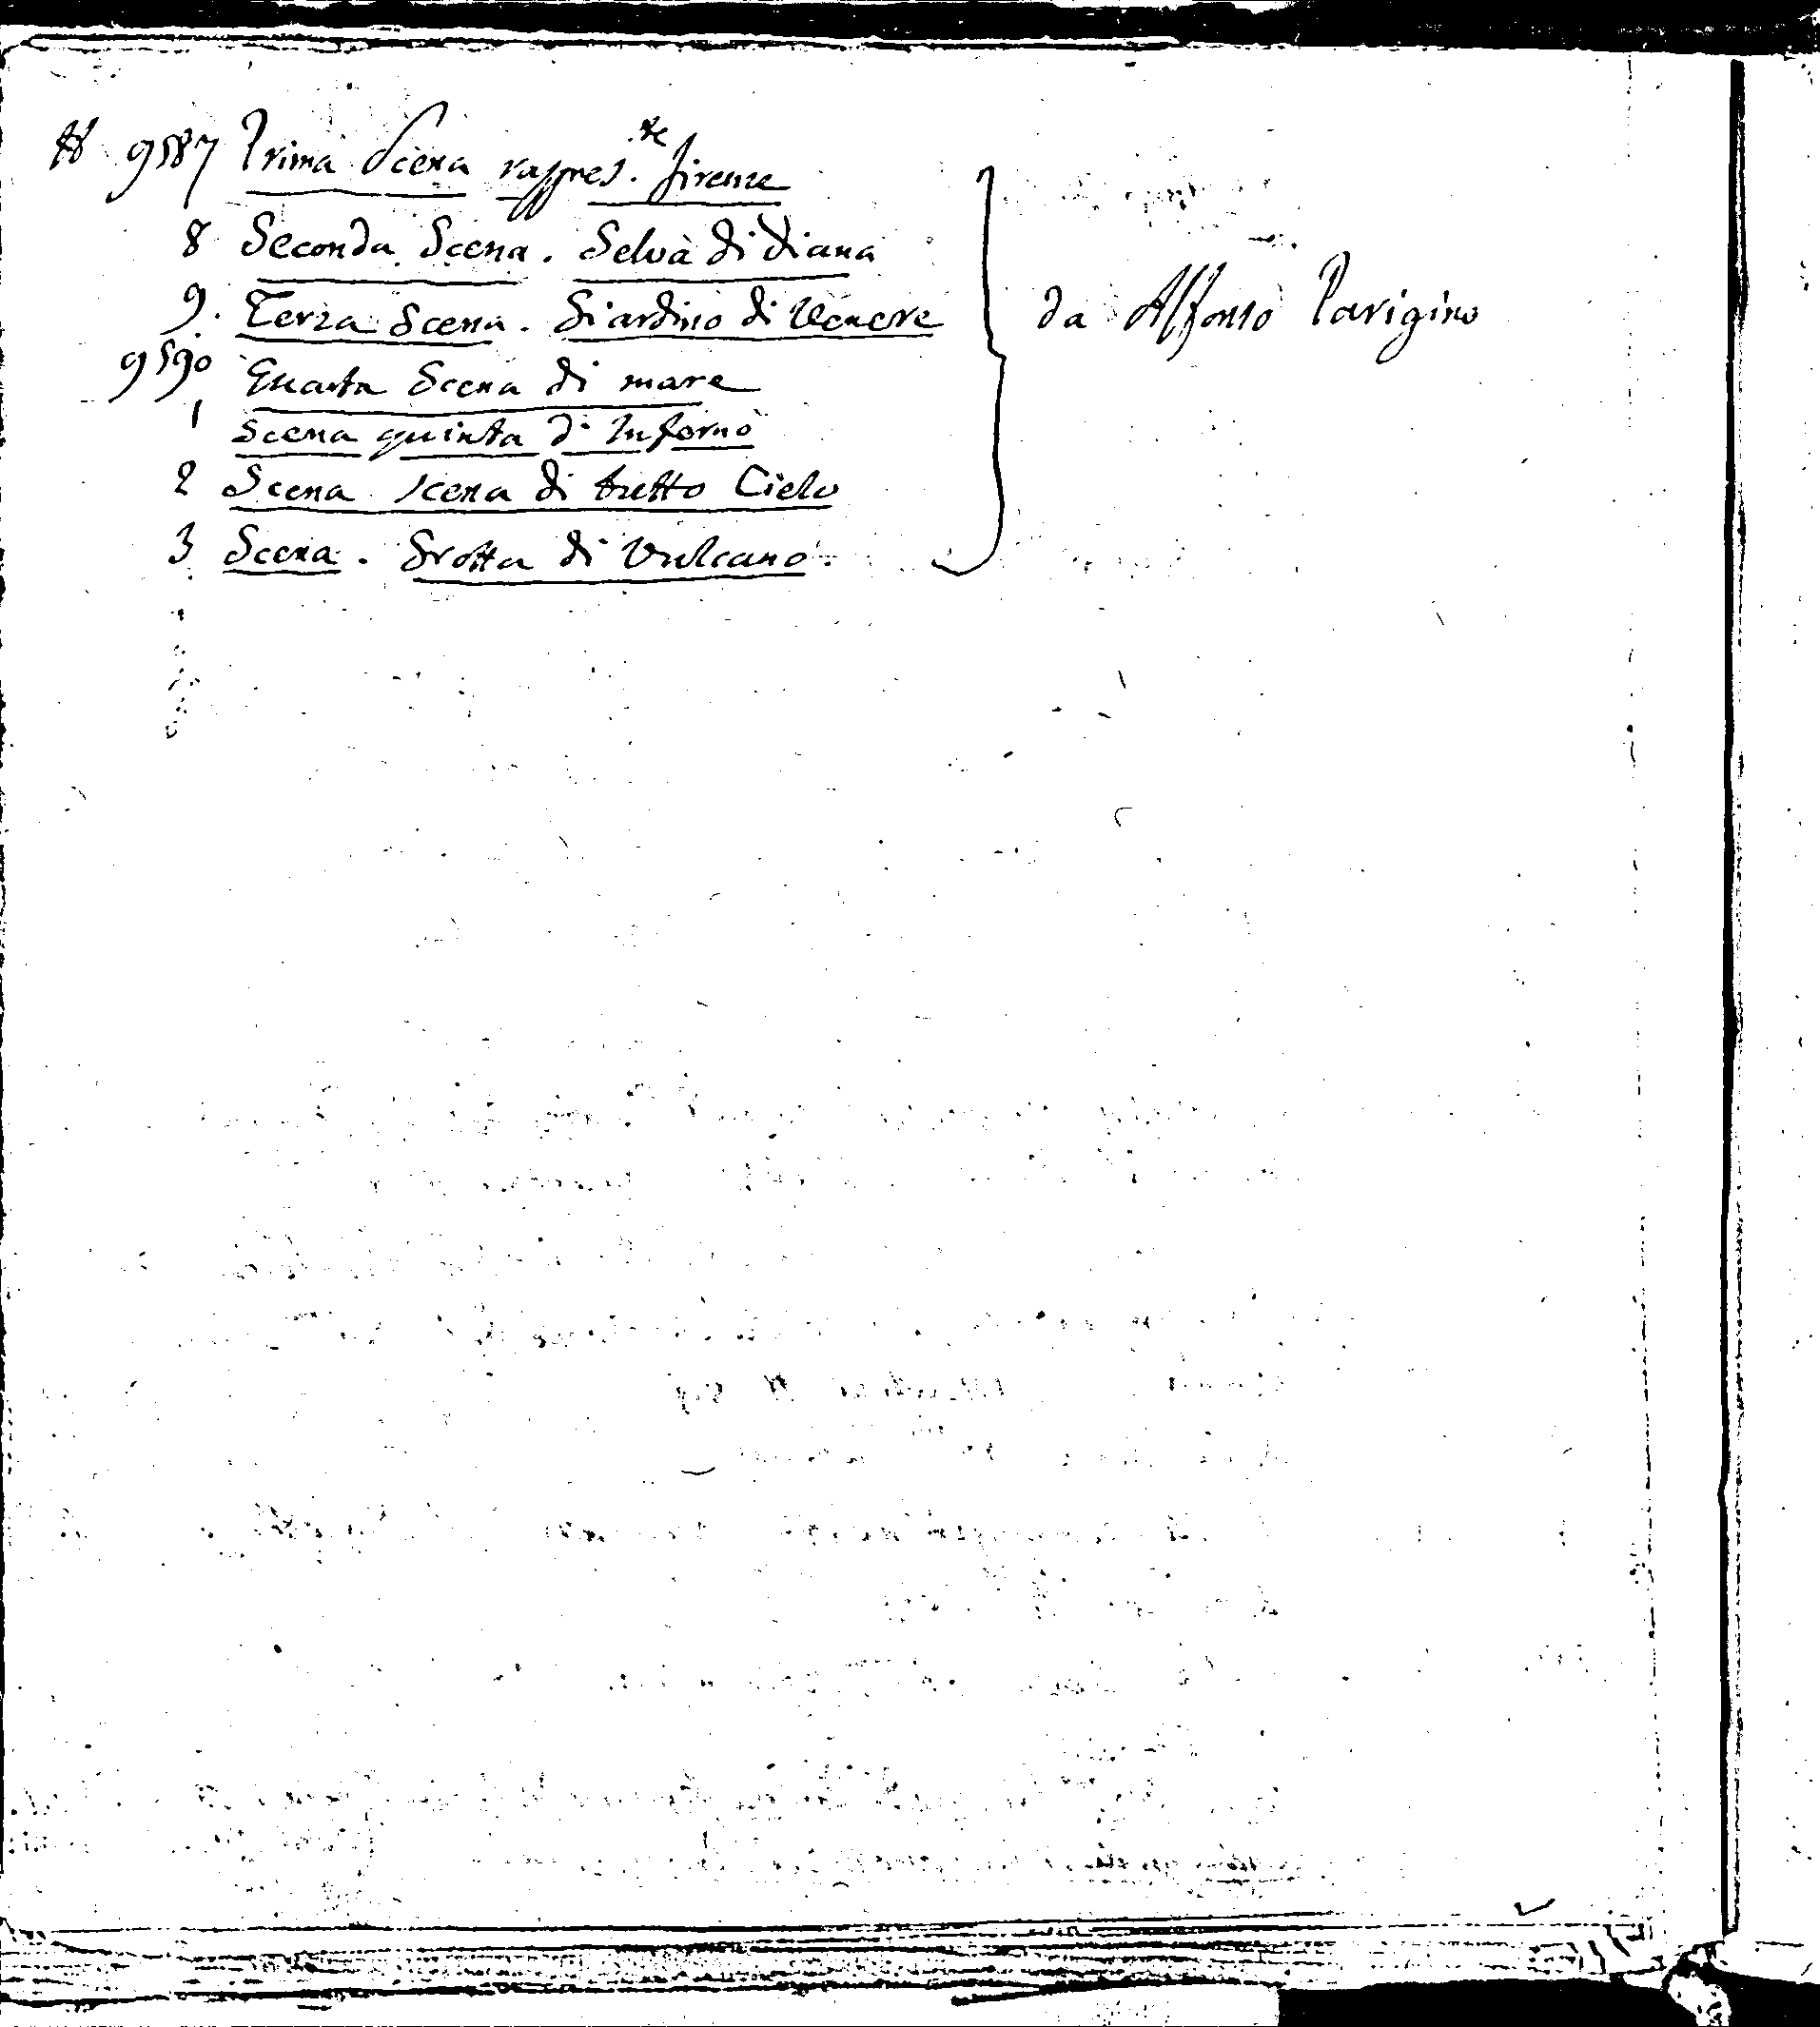 N 9587 Prima Scena rappres.te firenze
8 Seconda Scena. Selva di Diana
9. Terza Scena. Giardino di Venere
9590 Quarta Scena di mare
1 Scena quinta d'Inferno
2 Scena scena di tutto Cielo
3 Scena. Grotta di Vulcano
da Alfonso Parigino